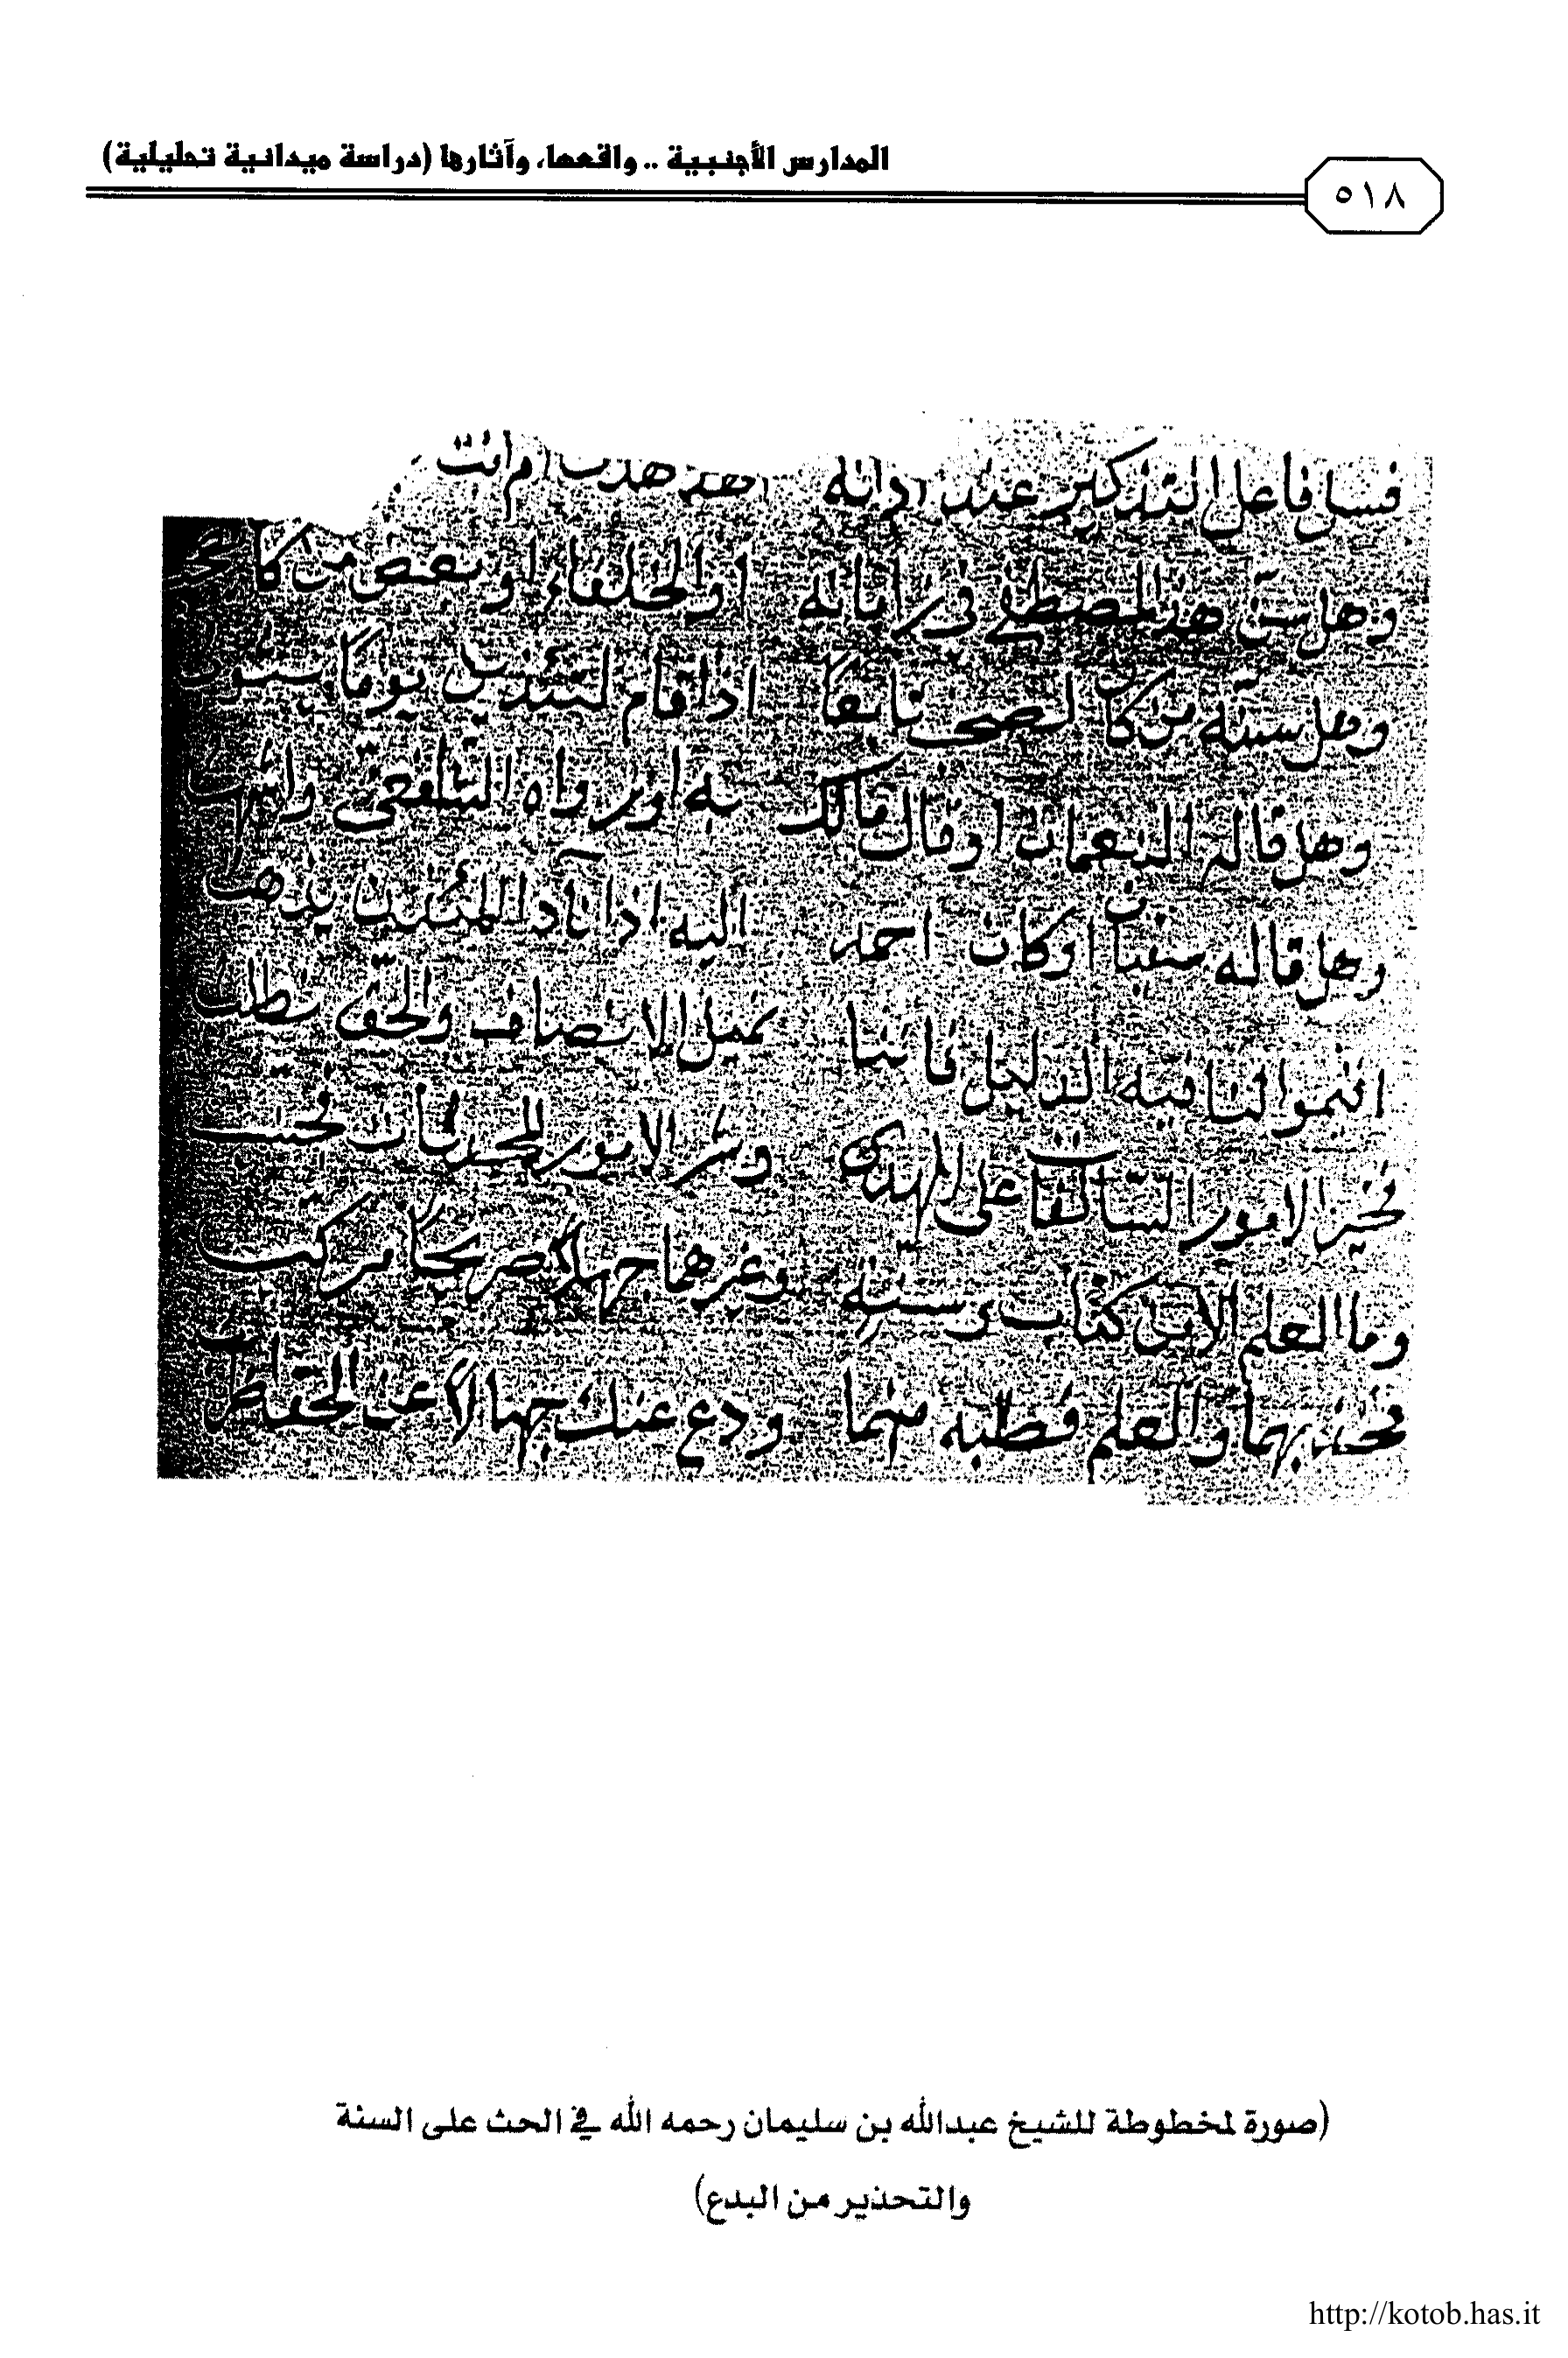 المدارس الأجنبية .. واقعها، وآثارها (دراسة ميدانية تحليلية)
٥١٨
فسل فاعل التذكير عند اذانه ام انت
وهل سن هذا المصطفى في زمانه او الخلفاء او بعض من كان
وهل سنه من كان للصحب تابعا اذا قام للتنذين يوما
وهل قاله النعمان او قال مالك به او رواه الشافعي واشهب
وهل قاله سفيان او كان احمد اليه اذا ناد المنادين يذهب
اقيموا لنا فيه الدليل فاننا نميل الى الانصاف والحق نطلب
فخير الامور السالفات على الهدى وشر الامور المحدثات فجنب
وما العلم الا من كتاب وسنة وغيرهما جهلا صريحا مركب
فخذ بهما والعلم فطلبه منهما ودع عنك جهالا عن الحق
(صورة لمخطوطة للشيخ عبدالله بن سليمان رحمه الله في الحث على السنة
والتحذير من البدع)
http://kotob.has.it